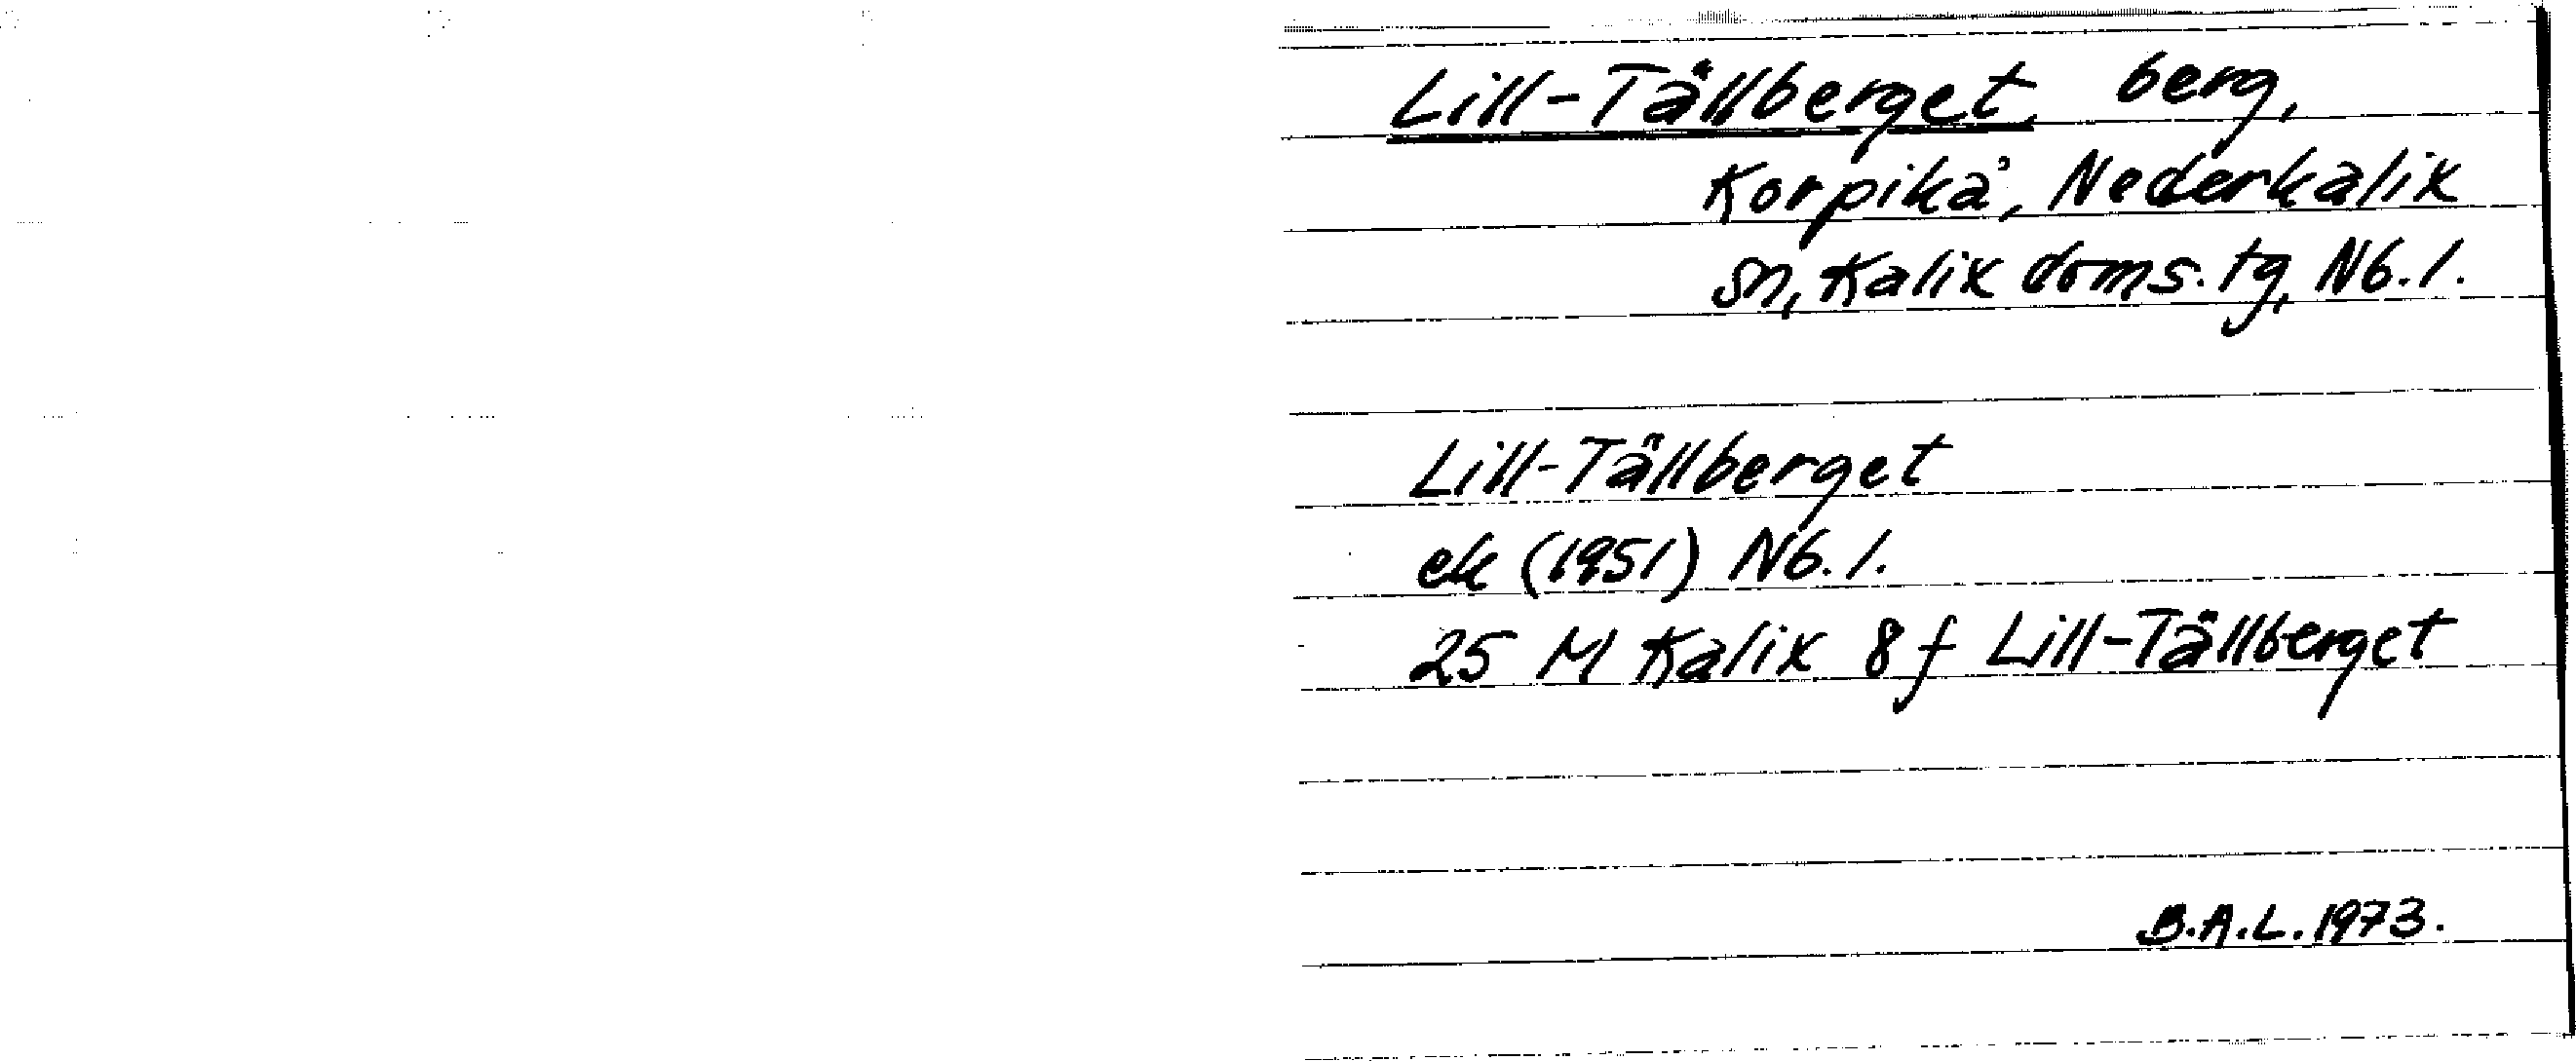 Lill-Tällberget, berg,
Korpikå, Nederkalix
sn, Kalix doms. tg, Nb. l.
Lill-Tällberget
ek (1951) Nb. l.
25 M Kalix 8f Lill-Tällberget
B.A.L. 1973.